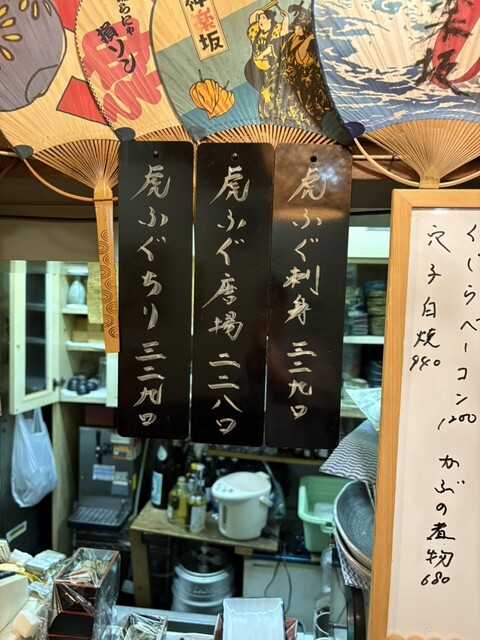 楽坂
神楽坂
らにゃ
損ソン
くじらベーコン 1200
穴子白焼 940
かぶの煮物 680
虎ふぐ刺身 三二九〇
虎ふぐ唐揚 二二八〇
虎ふぐちり 三二九〇